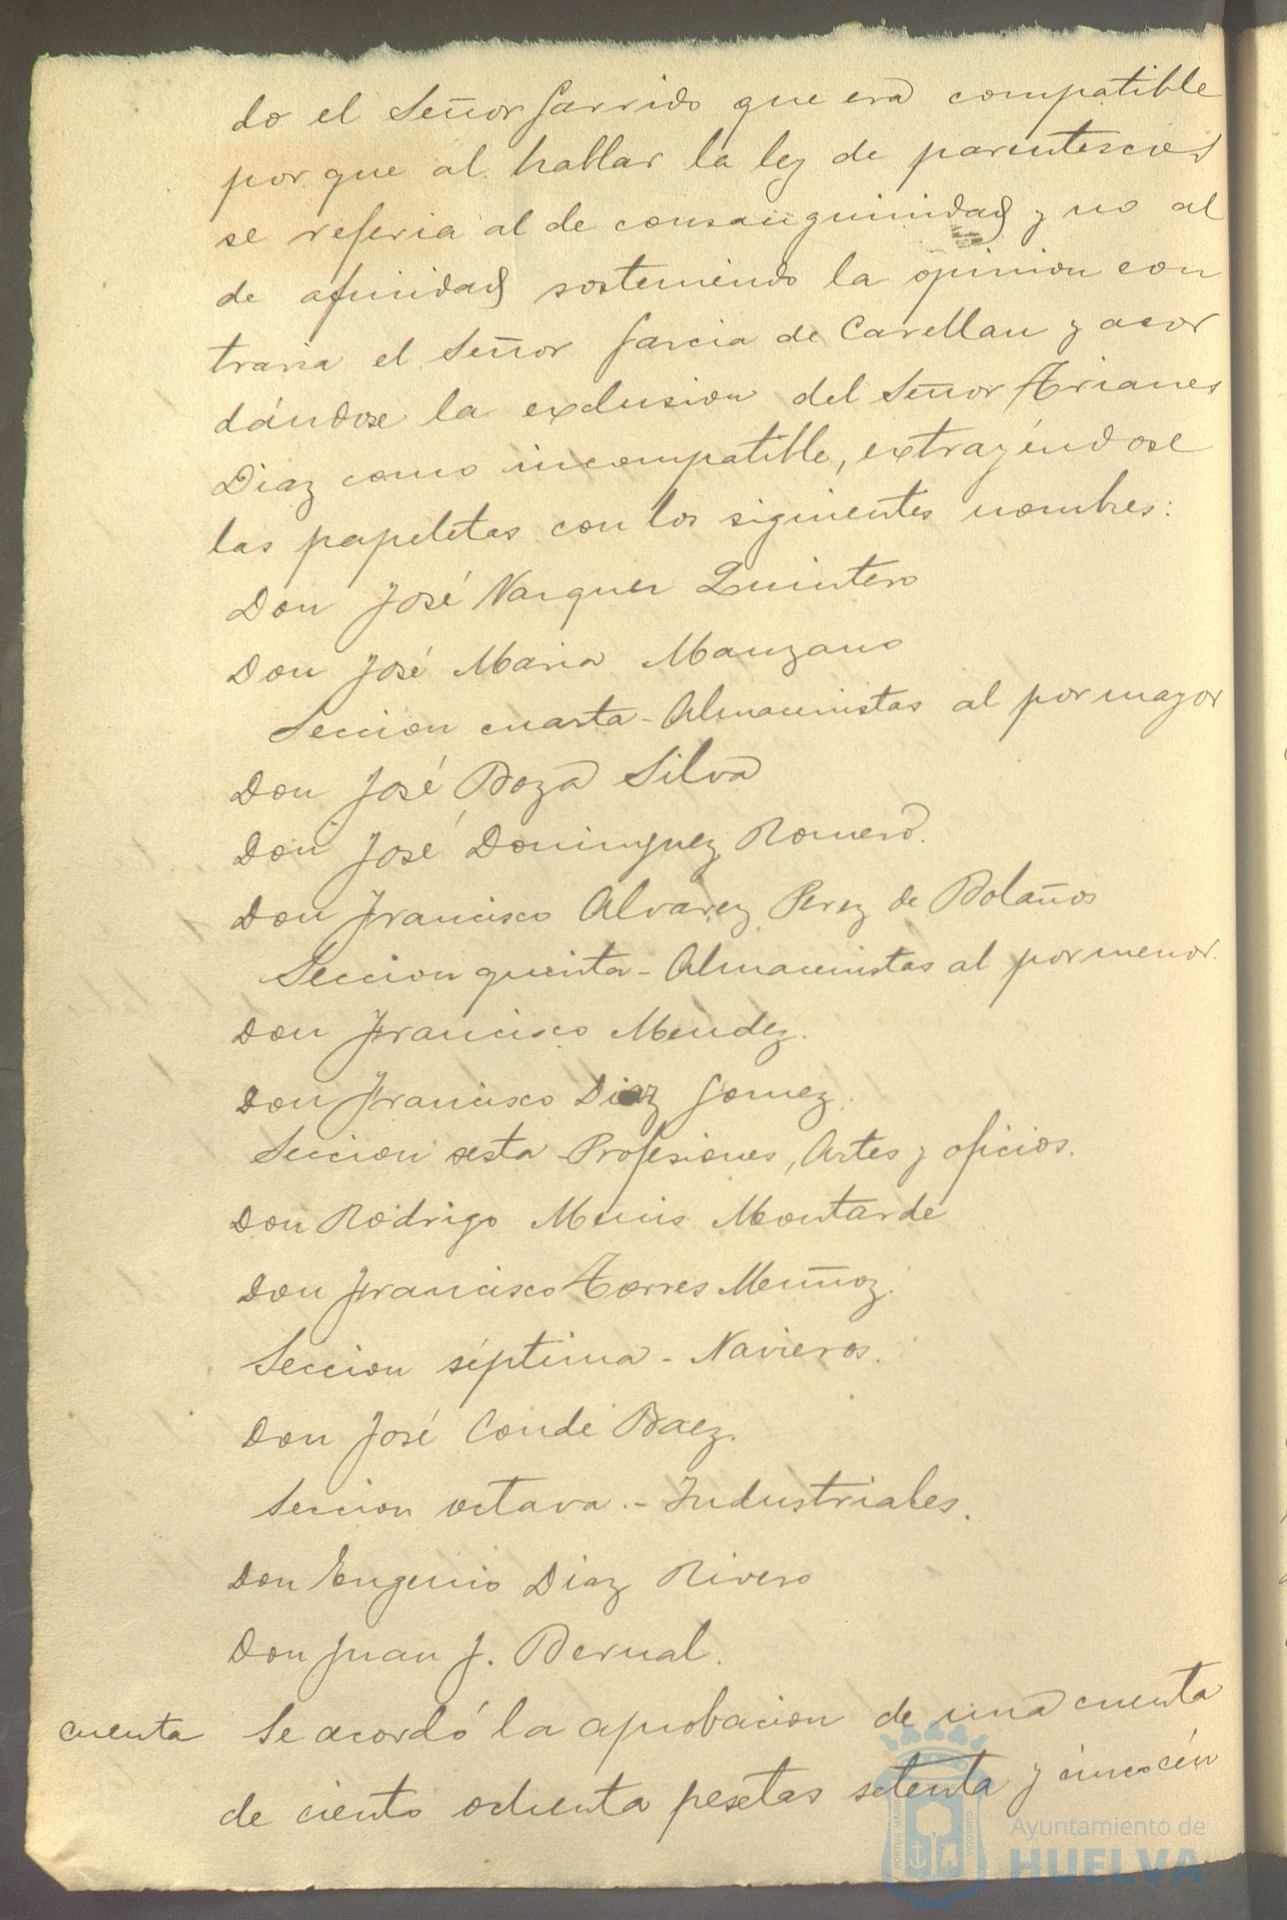 do el Señor Garrido que era compatible
por que al hablar la ley de parentescos
se referia al de consanguinidad y no al
de afinidad sosteniendo la opinion con
traria el Señor Garcia de Carellan y acor
dándose la exclusion del Señor Arianes
Diaz como incompatible, extrayéndose
las papeletas con los siguientes nombres:
Don José Vazquez Quintero
Don José Maria Manzano
Seccion cuarta - Almacenistas al por mayor
Don José Boza Silva
Don José Dominguez Romero.
Don Francisco Alvarez Perez de Bolaños
Seccion quinta - Almacenistas al por menor.
Don Francisco Mendez.
Don Francisco Diaz Gomez.
Seccion sesta Profesiones, Artes y oficios.
Don Rodrigo Montarde
Don Francisco Torres Muñoz.
Seccion séptima - Navieros.
Don José Conde Baez.
Seccion octava. - Industriales.
Don Eugenio Diaz Rivero
Don Juan J. Bernal.
cuenta Se acordó la aprobacion de una cuenta
de ciento ochenta pesetas setenta y cinco cén
Ayuntamiento de
HUELVA